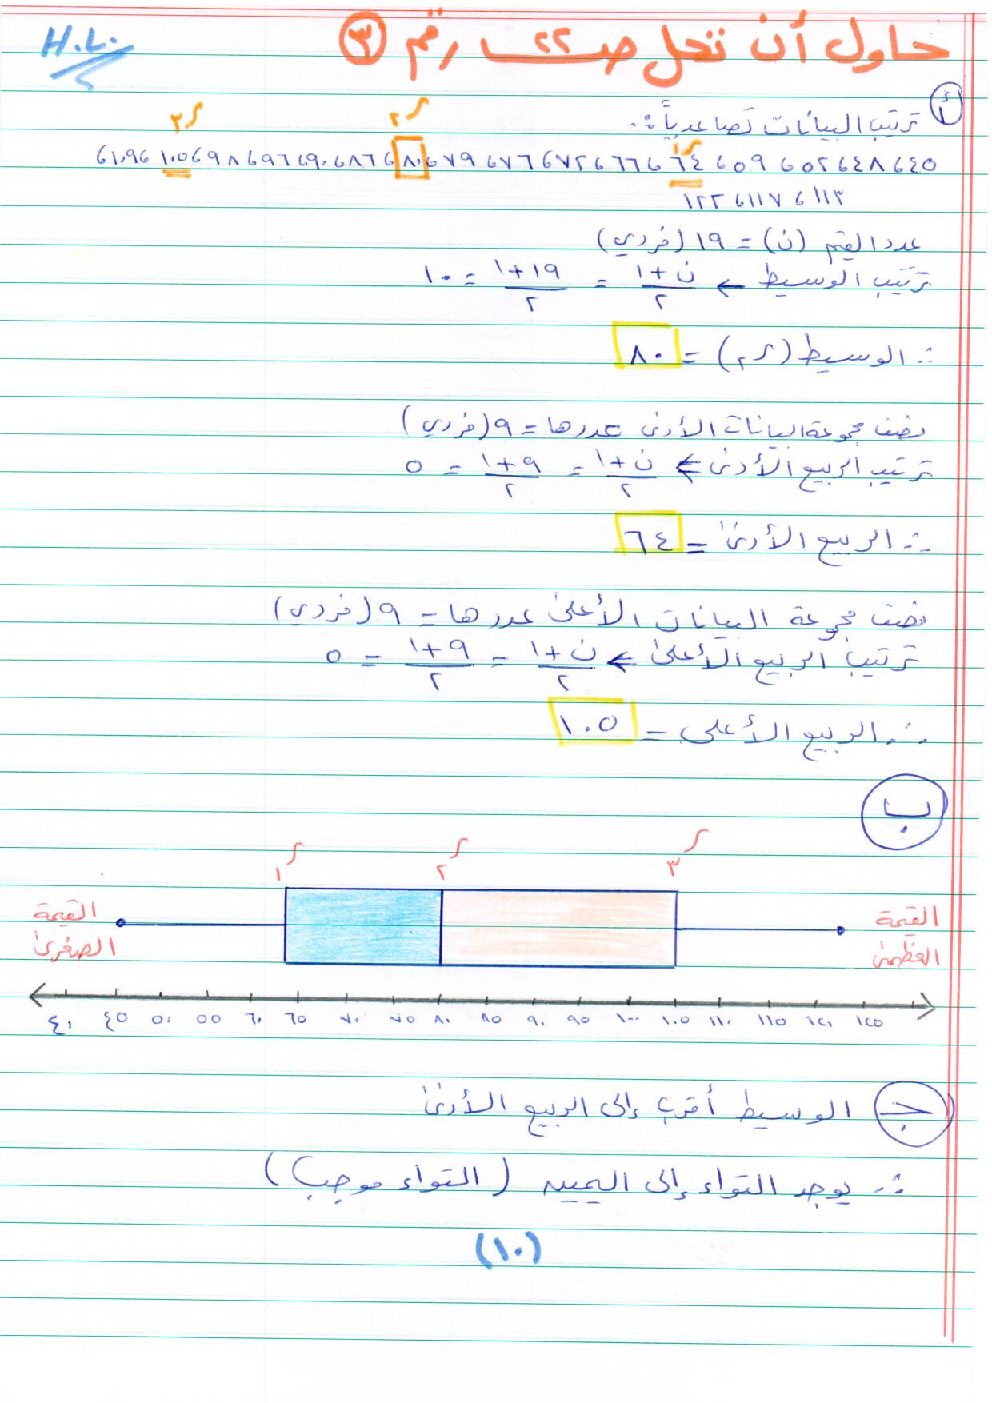 حاول أن تحل صـ ٢٢ رقم ٣
H.L.
أ ترتيب البيانات تصاعدياً :.
ر١ ر٢ ر٣
٤٥ ، ٤٨ ، ٥٢ ، ٥٩ ، ٦٤ ، ٦٦ ، ٧٢ ، ٧٦ ، ٧٩ ، ٨٠ ، ٨٦ ، ٩٠ ، ٩٦ ، ٩٨ ، ١٠٥ ، ١٠٩ ،
١١٣ ، ١١٧ ، ١٢٢
عدد القيم (ن) = ١٩ (فردي)
ترتيب الوسيط ← ن+١/٢ = ١٩+١/٢ = ١٠
∴ الوسيط (ر٢) = ٨٠
نصف مجموعة البيانات الأدنى عددها = ٩ (فردي)
ترتيب الربيع الأدنى ← ن+١/٢ = ٩+١/٢ = ٥
∴ الربيع الأدنى = ٦٤
نصف مجموعة البيانات الأعلى عددها = ٩ (فردي)
ترتيب الربيع الأعلى ← ن+١/٢ = ٩+١/٢ = ٥
∴ الربيع الأعلى = ١٠٥
ب
ر١ ر٢ ر٣
القيمة الصغرى
القيمة العظمى
٤٠ ٤٥ ٥٠ ٥٥ ٦٠ ٦٥ ٧٠ ٧٥ ٨٠ ٨٥ ٩٠ ٩٥ ١٠٠ ١٠٥ ١١٠ ١١٥ ١٢٠ ١٢٥
جـ الوسيط أقرب إلى الربيع الأدنى
∴ يوجد التواء إلى اليمين (التواء موجب)
(١٠)